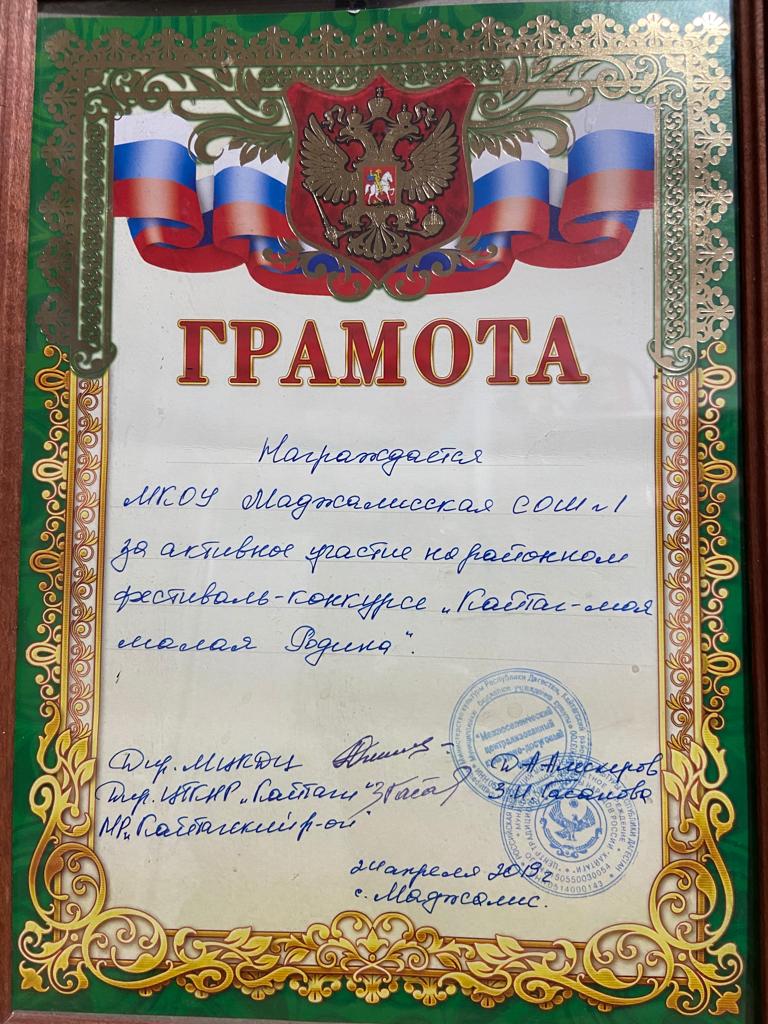 ГРАМОТА
Награждается
МКОУ Маджалисская СОШ №1
за активное участие на районном
фестиваль-конкурсе „Кайтаг-моя
малая Родина".
Дир. МЦКДЦ Д.А.Алескеров
Дир. ЦТКНР „Кайтаги" З.И.Гасанова
МР„Кайтагский р-он"
"Межпоселенческий
централизованный
24 апреля 2019г
с. Маджалис.